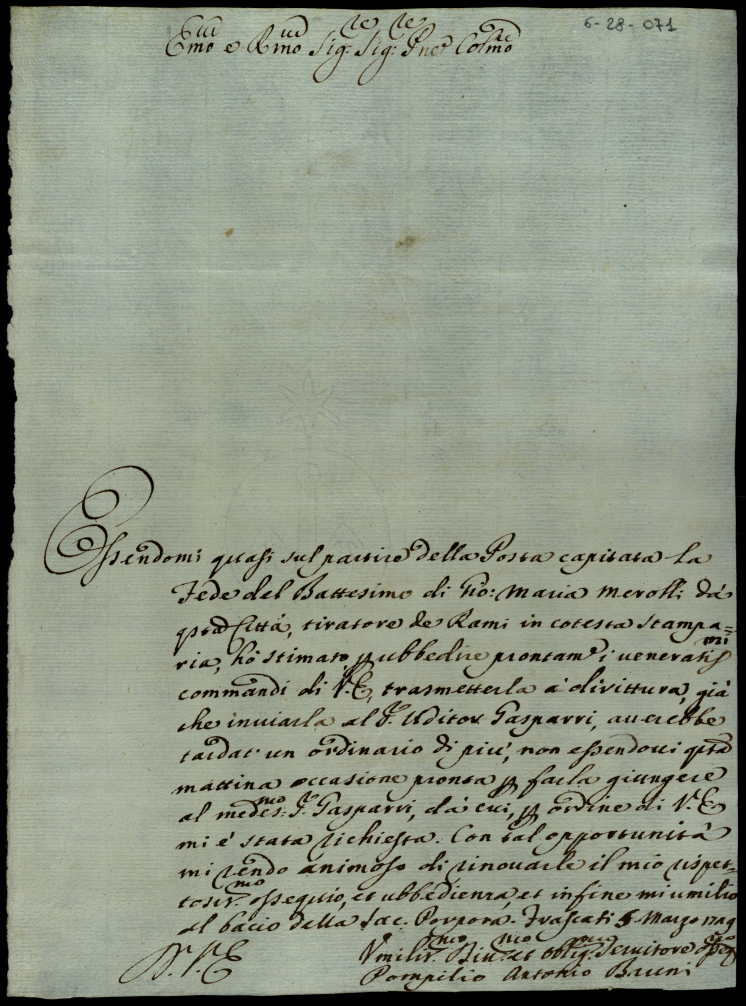 6-28-071
Emo e Rmo Sig.r Sig.r Pne Colmo
Essendomi quasi sul partire della Posta capitata la
Fede del Battesimo di Gio: Maria Merolli da
qsta Città, tiratore de Rami in cotesta Stampa=
ria, hò stimato p ubbedire prontam.e i veneratis.mi
commandi di V.E., trasmetterla à dirittura, già
che inviarla al S.r Uditor Gasparri, averebbe
tardat un ordinario di più, non essendovi qsta
mattina occasione pronta p farla giungere
al medes.mo S.r Gasparri, dà cui, p ordine di V.E.
mi è stata richiesta. Con tal opportunità
mi rendo animoso di rinovarle il mio rispet=
tosis.mo ossequio, et ubbedienza, et in fine mi umilio
al bacio della Sac. Porpora. Frascati 5 Marzo
D. V. E.
Umilis.mo Div.mo et Obblig.mo Servitore Osseq.mo
Pompilio Antonio